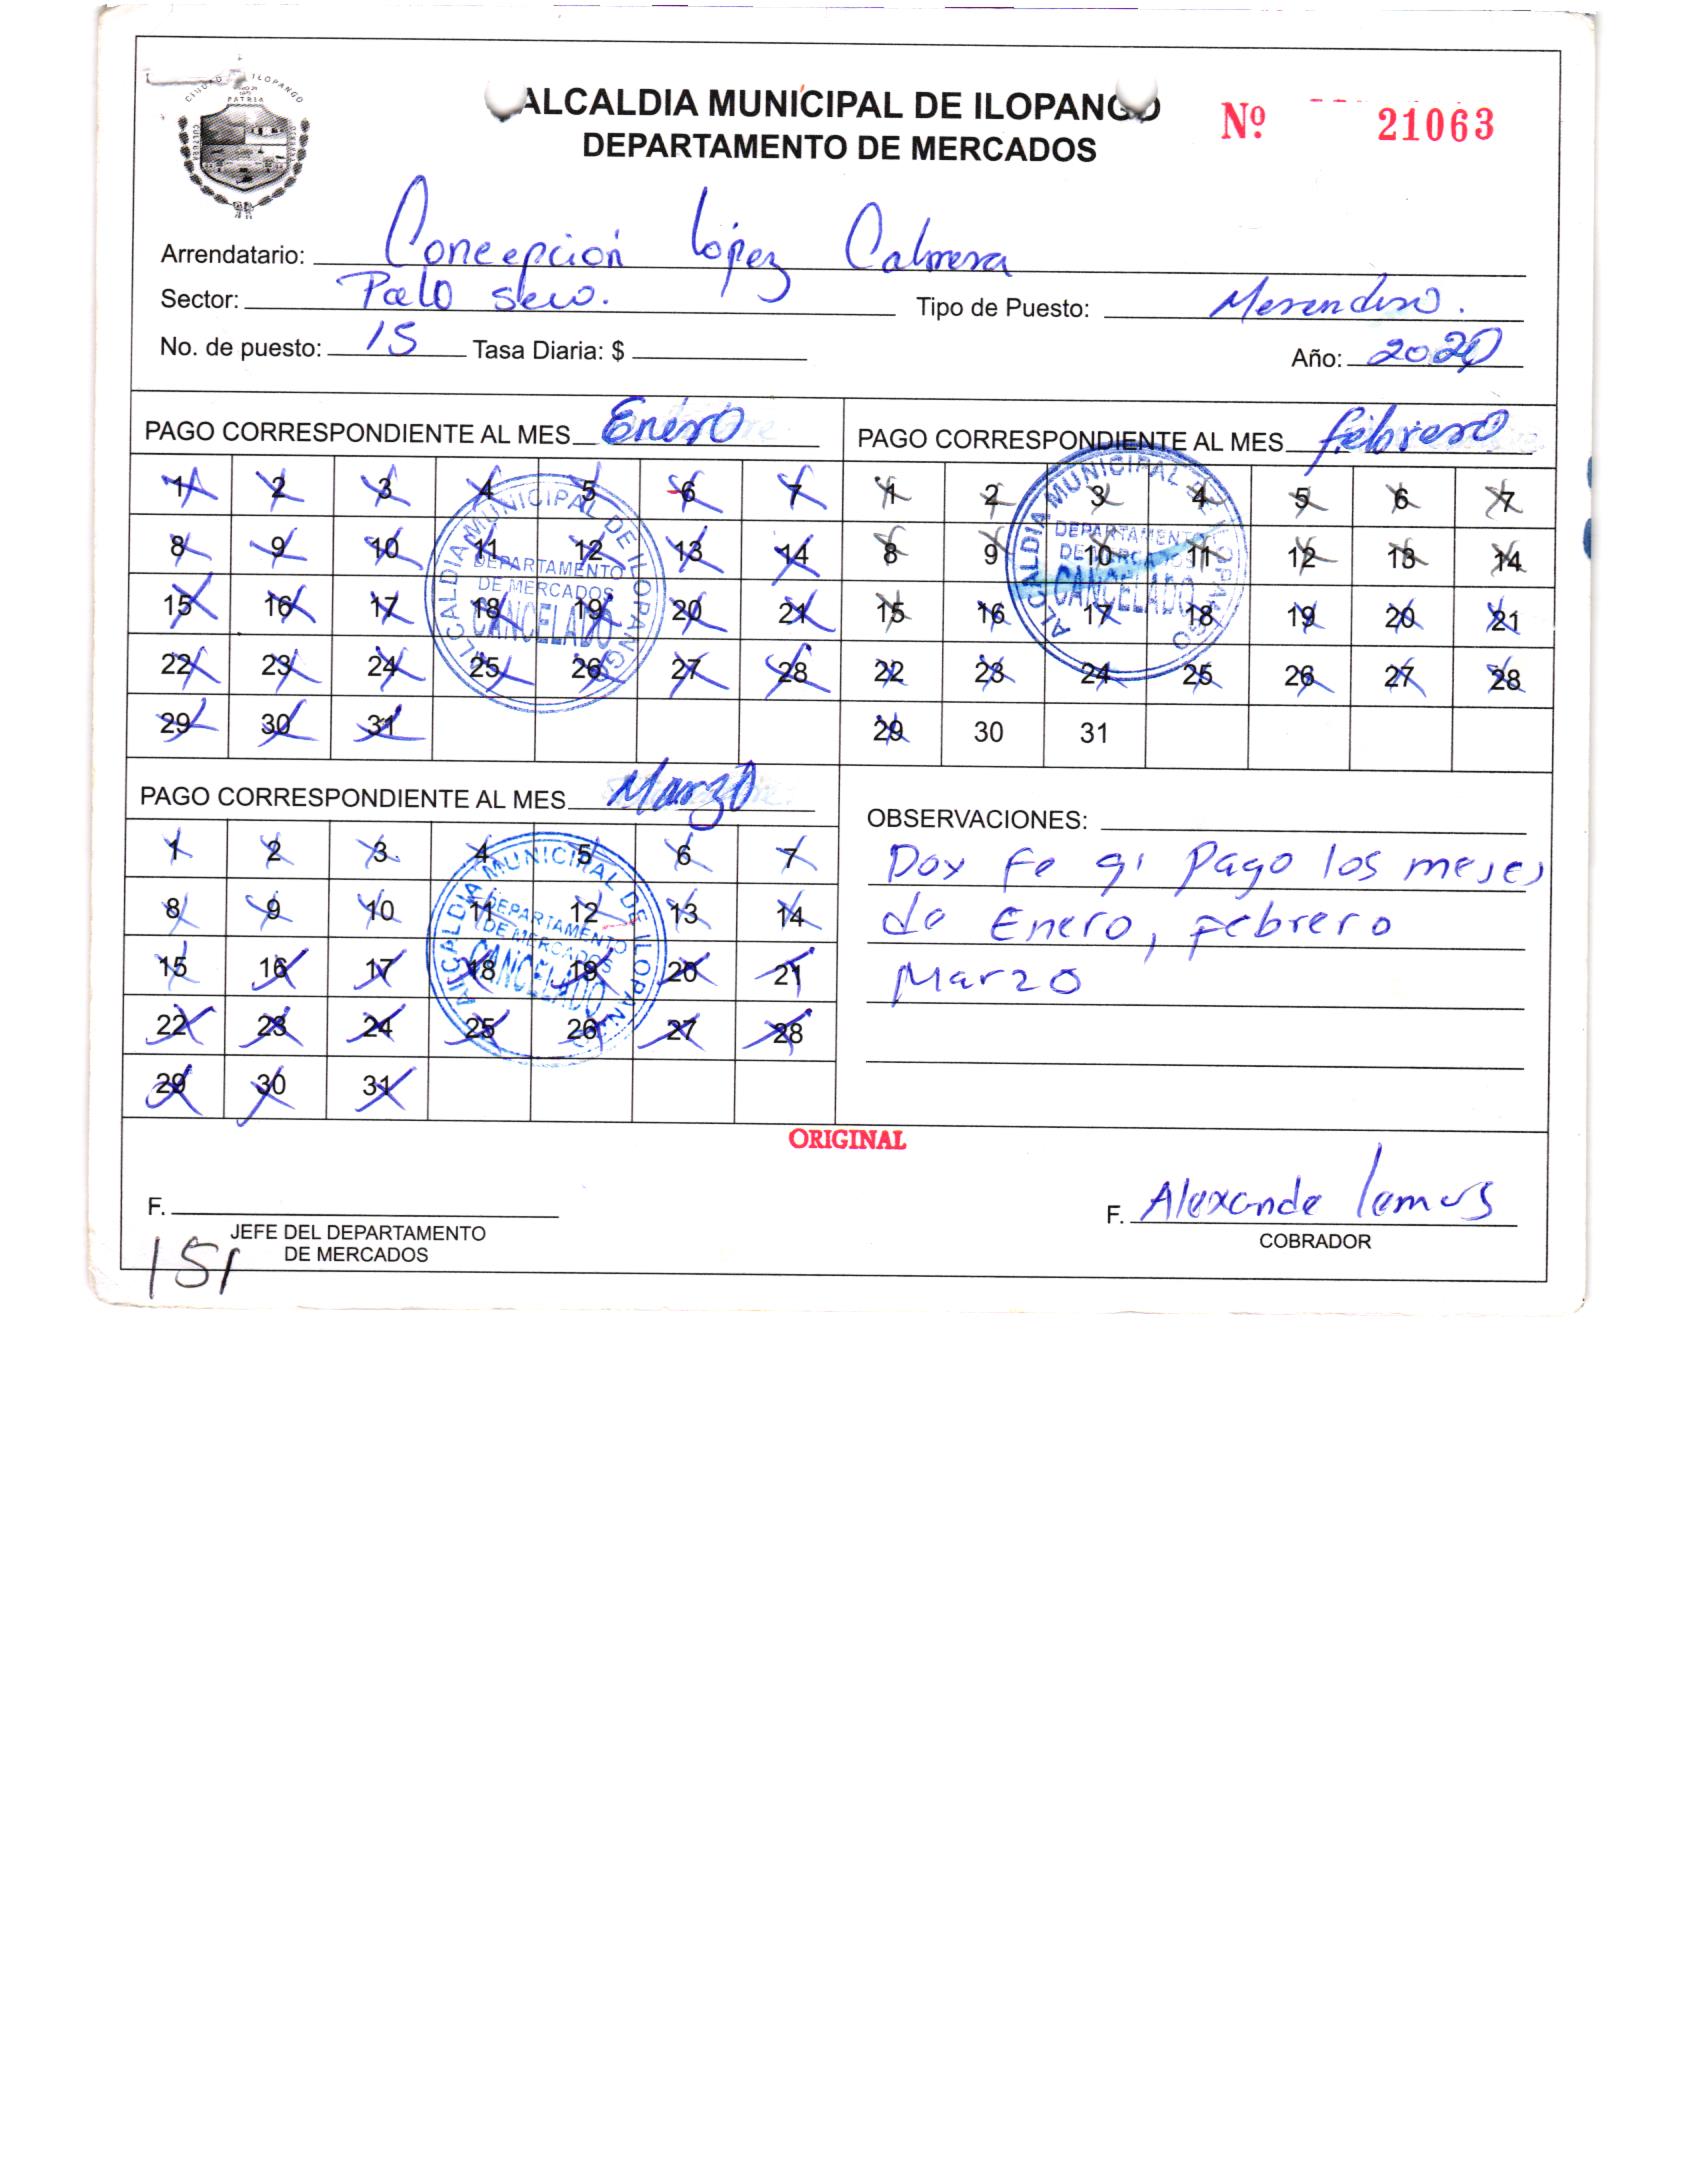 CIUDAD ILOPANGO
PATRIA
CULTURA
ALCALDIA MUNICIPAL DE ILOPANGO
Nº 21063
DEPARTAMENTO DE MERCADOS
Arrendatario: Concepción López Cabrera
Sector: Palo seco. Tipo de Puesto:
No. de puesto: 15 Tasa Diaria: $ Año: 2020
PAGO CORRESPONDIENTE AL MES Enero
1 2 3 4 5 6 7
8 9 10 11 12 13 14
15 16 17 18 19 20 21
22 23 24 25 26 27 28
29 30 31
ALCALDIA MUNICIPAL DE ILOPANGO
DEPARTAMENTO
DE MERCADOS
CANCELADO
PAGO CORRESPONDIENTE AL MES febrero
1 2 3 4 5 6 7
8 9 10 11 12 13 14
15 16 17 18 19 20 21
22 23 24 25 26 27 28
29 30 31
ALCALDIA MUNICIPAL DE ILOPANGO
DEPARTAMENTO
DE MERCADOS
CANCELADO
PAGO CORRESPONDIENTE AL MES Marzo
1 2 3 4 5 6 7
8 9 10 11 12 13 14
15 16 17 18 19 20 21
22 23 24 25 26 27 28
29 30 31
ALCALDIA MUNICIPAL DE ILOPANGO
DEPARTAMENTO
DE MERCADOS
CANCELADO
OBSERVACIONES:
Doy Fe qi Pago los meses
de Enero, Febrero
Marzo
ORIGINAL
F.
JEFE DEL DEPARTAMENTO
DE MERCADOS
151
F. Alexande lemus
COBRADOR